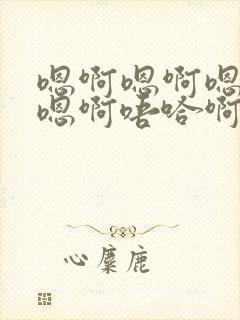 嗯啊嗯啊嗯
嗯啊唔哈啊
心麋鹿